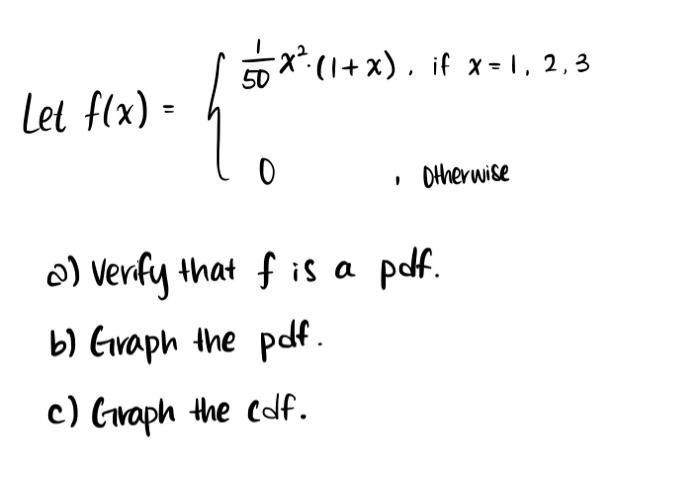 Let f(x) = { 1/50 x²·(1+x), if x = 1, 2, 3
0 , otherwise
a) Verify that f is a pdf.
b) Graph the pdf.
c) Graph the cdf.